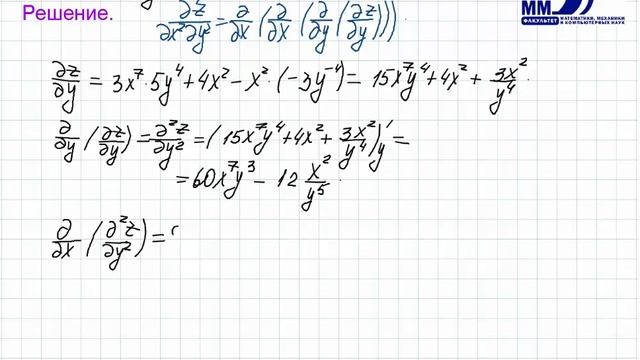 Решение.
∂z/∂x²∂y² = ∂/∂x (∂/∂x (∂/∂y (∂z/∂y))).
ММ
ФАКУЛЬТЕТ МАТЕМАТИКИ, МЕХАНИКИ И КОМПЬЮТЕРНЫХ НАУК
∂z/∂y = 3x⁷·5y⁴+4x²−x²·(−3y⁻⁴) = 15x⁷y⁴+4x²+ 3x²/y⁴.
∂/∂y (∂z/∂y) = ∂²z/∂y² = (15x⁷y⁴+4x²+ 3x²/y⁴)'y =
= 60x⁷y³ − 12 x²/y⁵.
∂/∂x (∂²z/∂y²) =